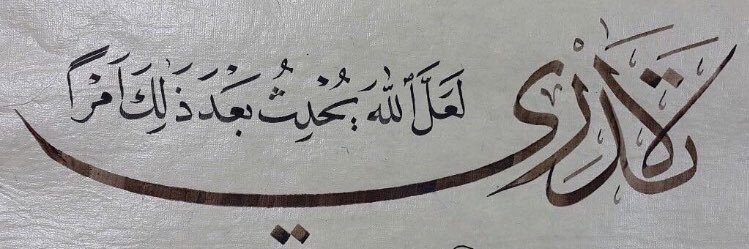 لَا تَدْرِي لَعَلَّ ٱللَّهَ يُحْدِثُ بَعْدَ ذَٰلِكَ اَمْرًا